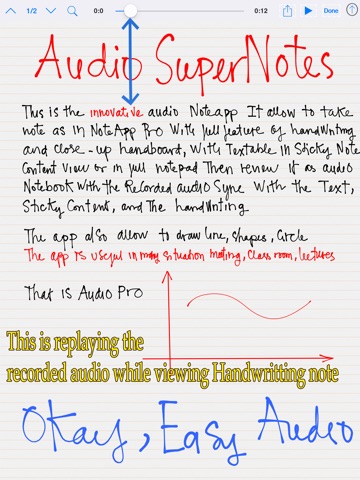 1/2 0:0 0:12 Done
Audio SuperNotes
This is the innovative audio Noteapp It allow to take
note as in NoteApp Pro With full feature of handWriting
and close-up handboard, With Textable in Sticky Note
Content View or in full notepad Then review it as audio
Notebook With the Recorded audio Sync With the Text,
Sticky Content, and The handWriting
The app also allow to draw line, shapes, Circle
The app is useful in many situation meeting, Class room, lectures
That is Audio Pro
This is replaying the
recorded audio while viewing Handwritting note
Okay, Easy Audio